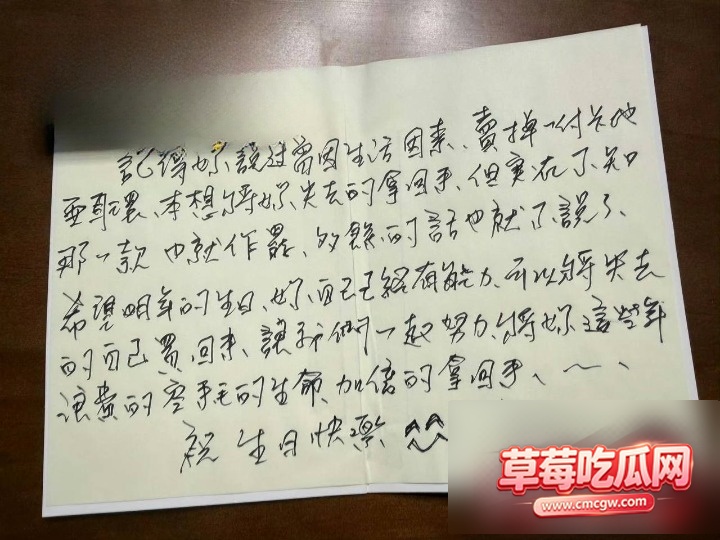 記得妳說过曾因生活因素、賣掉一付卡地
亞耳環、本想將妳失去的拿回來、但实在不知
那一款 也就作罷、多餘的話也就不說了、
希望明年的生日、妳自己已經有能力、可以將失去
的自己買回來、讓我們一起努力、將妳這些年
浪費的空乏的生命、加倍的拿回來、~、
祝 生日快樂
草莓吃瓜网
www.cmcgw.com